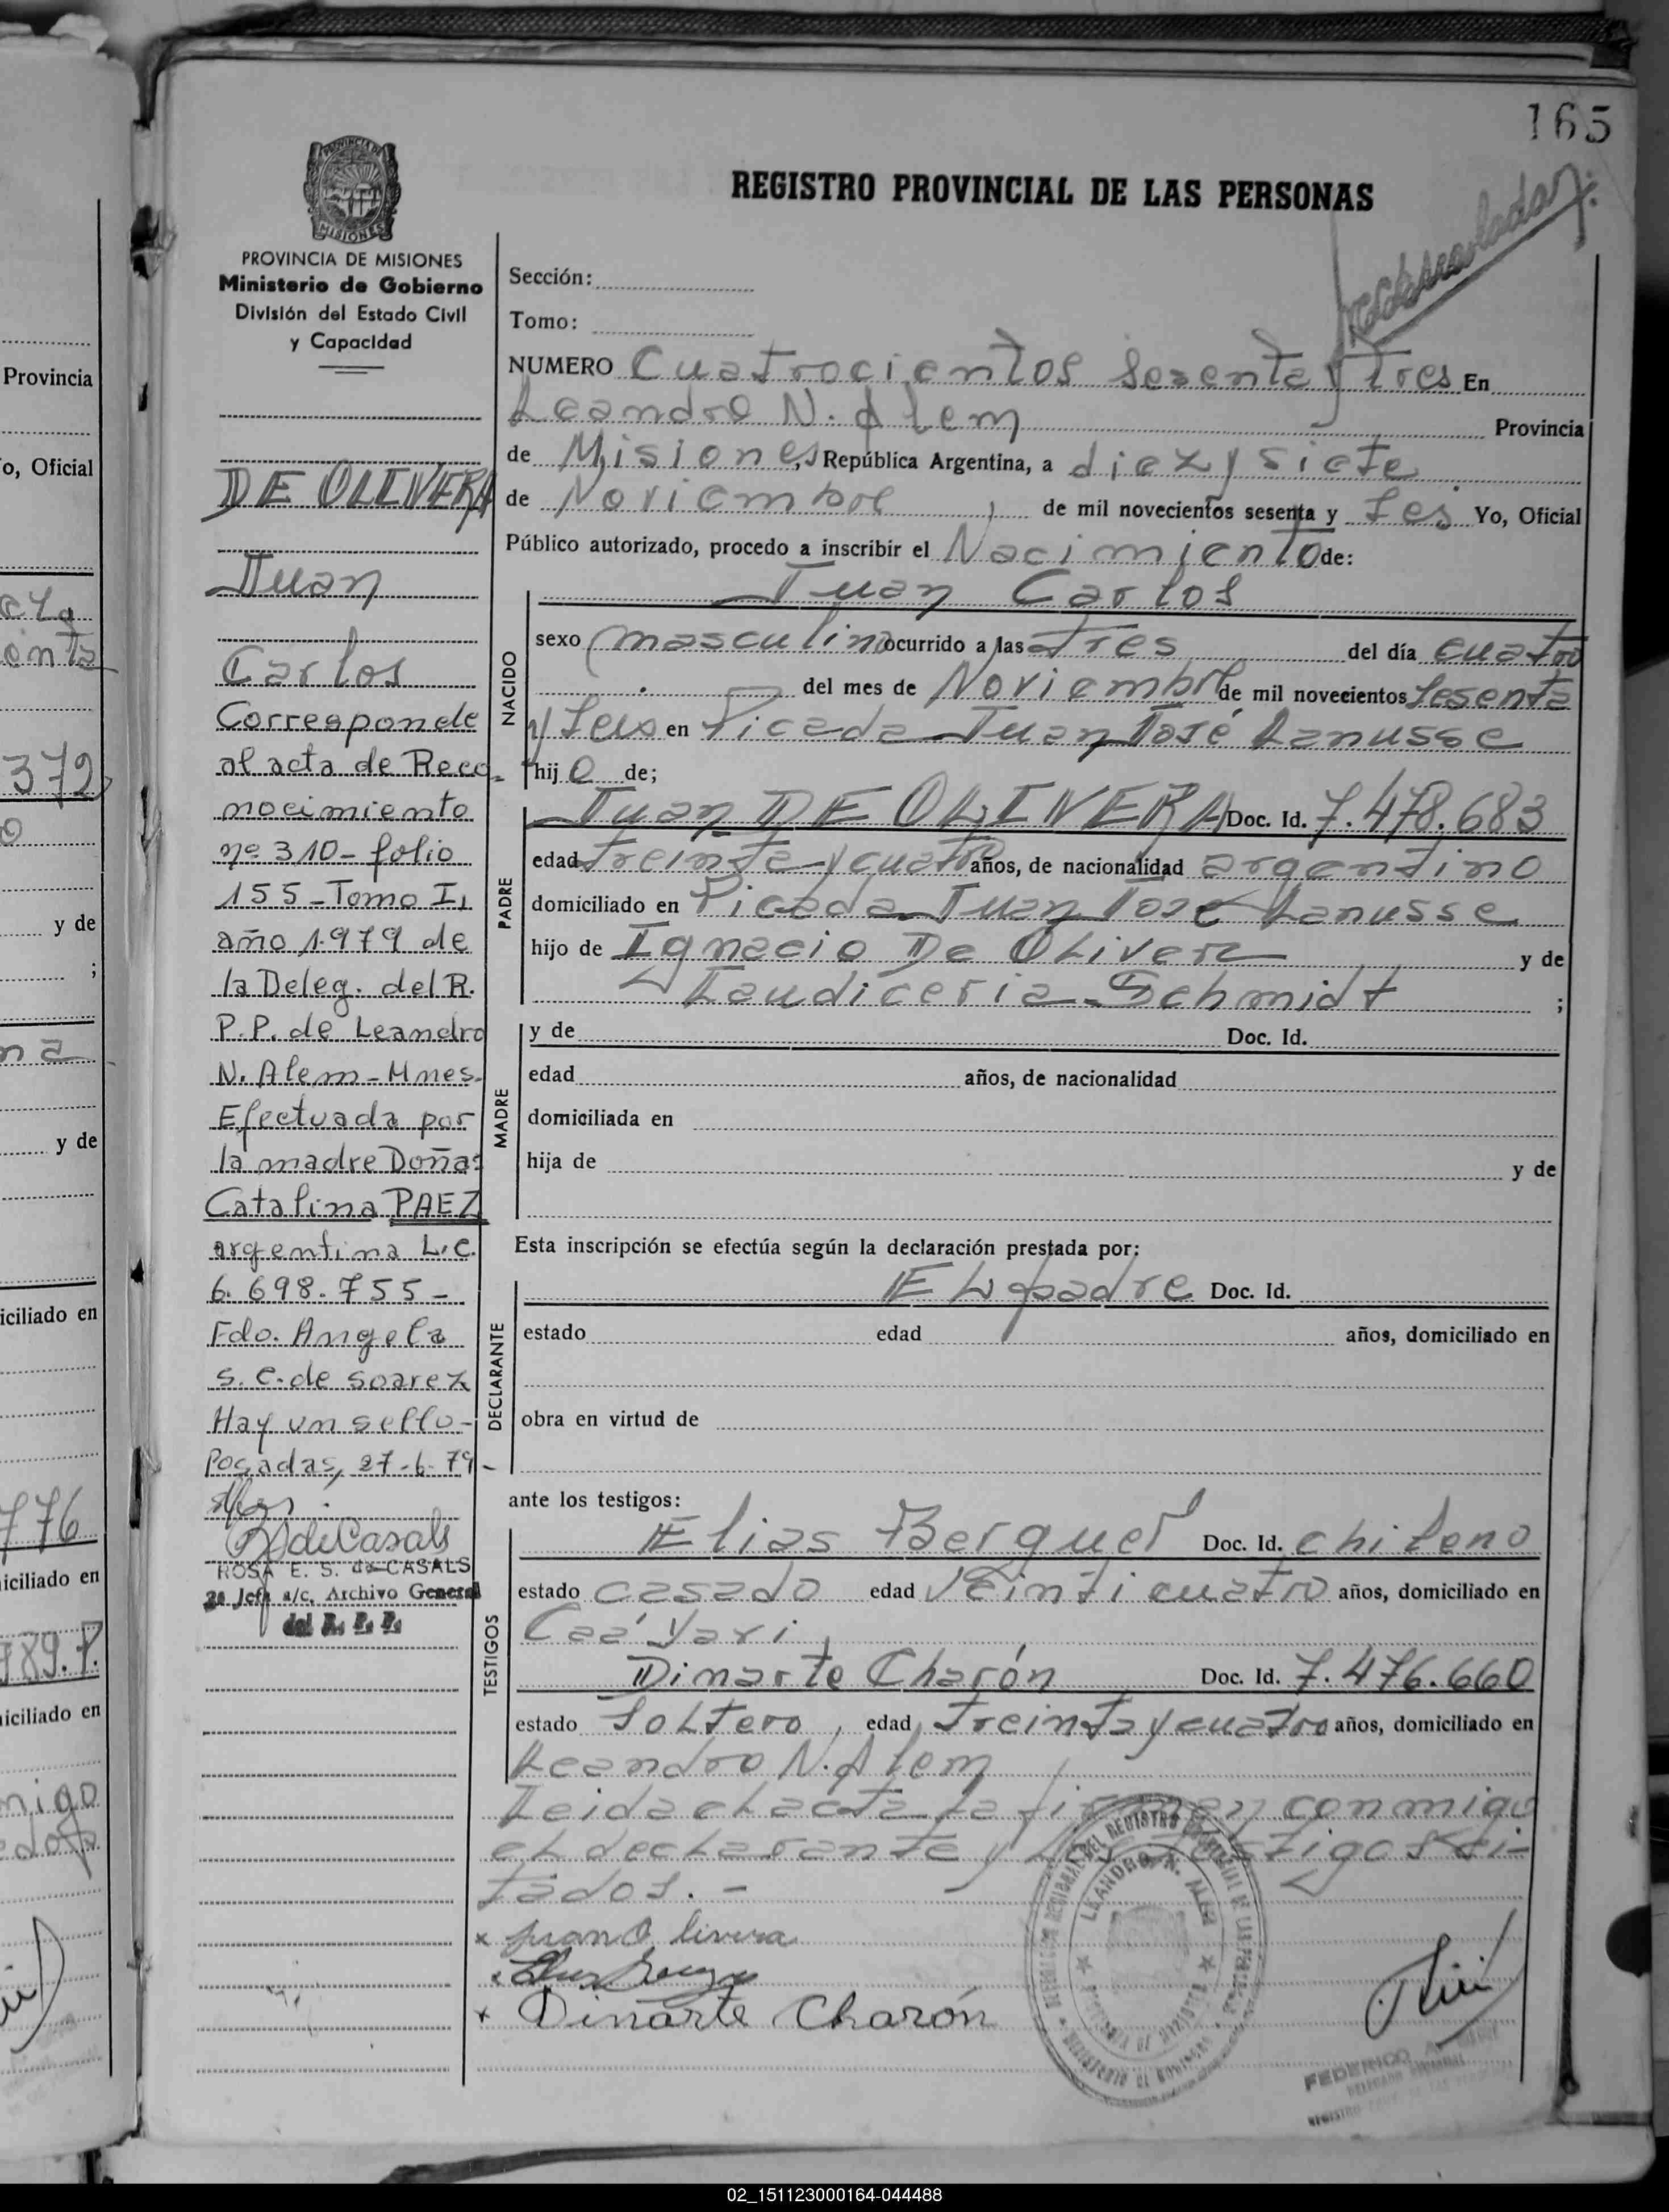 165
REGISTRO PROVINCIAL DE LAS PERSONAS
PROVINCIA DE MISIONES
Ministerio de Gobierno
División del Estado Civil
y Capacidad
DE OLIVERA
Juan
Carlos
Corresponde
al acta de Reco-
nocimiento
nº 310 - folio
155 - Tomo I,
año 1.979 de
la Deleg. del R.
P.P. de Leandro
N. Alem - Mnes.
Efectuada por
la madre Doña:
Catalina PAEZ
argentina L.C.
6.698.755 -
Fdo. Angela
S. C. de Soarez
Hay un sello -
Posadas, 27-6-79 -
R S de Casals
ROSA E. S. de CASALS
2ª Jefe a/c. Archivo General
del R. P. P.
Sección:
Tomo:
NUMERO Cuatrocientos Sesenta y tres En
Leandro N. Alem Provincia
de Misiones, República Argentina, a diez y siete
de Noviembre de mil novecientos sesenta y Seis Yo, Oficial
Público autorizado, procedo a inscribir el Nacimiento de:
Juan Carlos
NACIDO
sexo masculino ocurrido a las tres del día cuatro
del mes de Noviembre de mil novecientos Sesenta
y Seis en Picada Juan José Lanusse
hijo de;
PADRE
Juan DE OLIVERA Doc. Id. 7.478.683
edad treinta y cuatro años, de nacionalidad argentino
domiciliado en Picada Juan José Lanusse
hijo de Ignacio De Olivera y de
Laudiceria Schmidt ;
MADRE
y de Doc. Id.
edad años, de nacionalidad
domiciliada en
hija de y de
Esta inscripción se efectúa según la declaración prestada por:
DECLARANTE
El padre Doc. Id.
estado edad años, domiciliado en
obra en virtud de
ante los testigos:
TESTIGOS
Elias Berguer Doc. Id. chileno
estado casado edad Veinticuatro años, domiciliado en
Caá Yari
Dinarte Charón Doc. Id. 7.476.660
estado Soltero, edad treinta y cuatro años, domiciliado en
Leandro N. Alem
Leida el acta la firman conmigo
el declarante y los testigos ci-
tados. -
x juan O livera
x Dinarte Charón
LEANDRO N. ALEM
FEDERICO A.
Provincia
o, Oficial
372
y de
;
y de
iciliado en
776
iciliado en
789.P.
iciliado en
migo
02_151123000164-044488